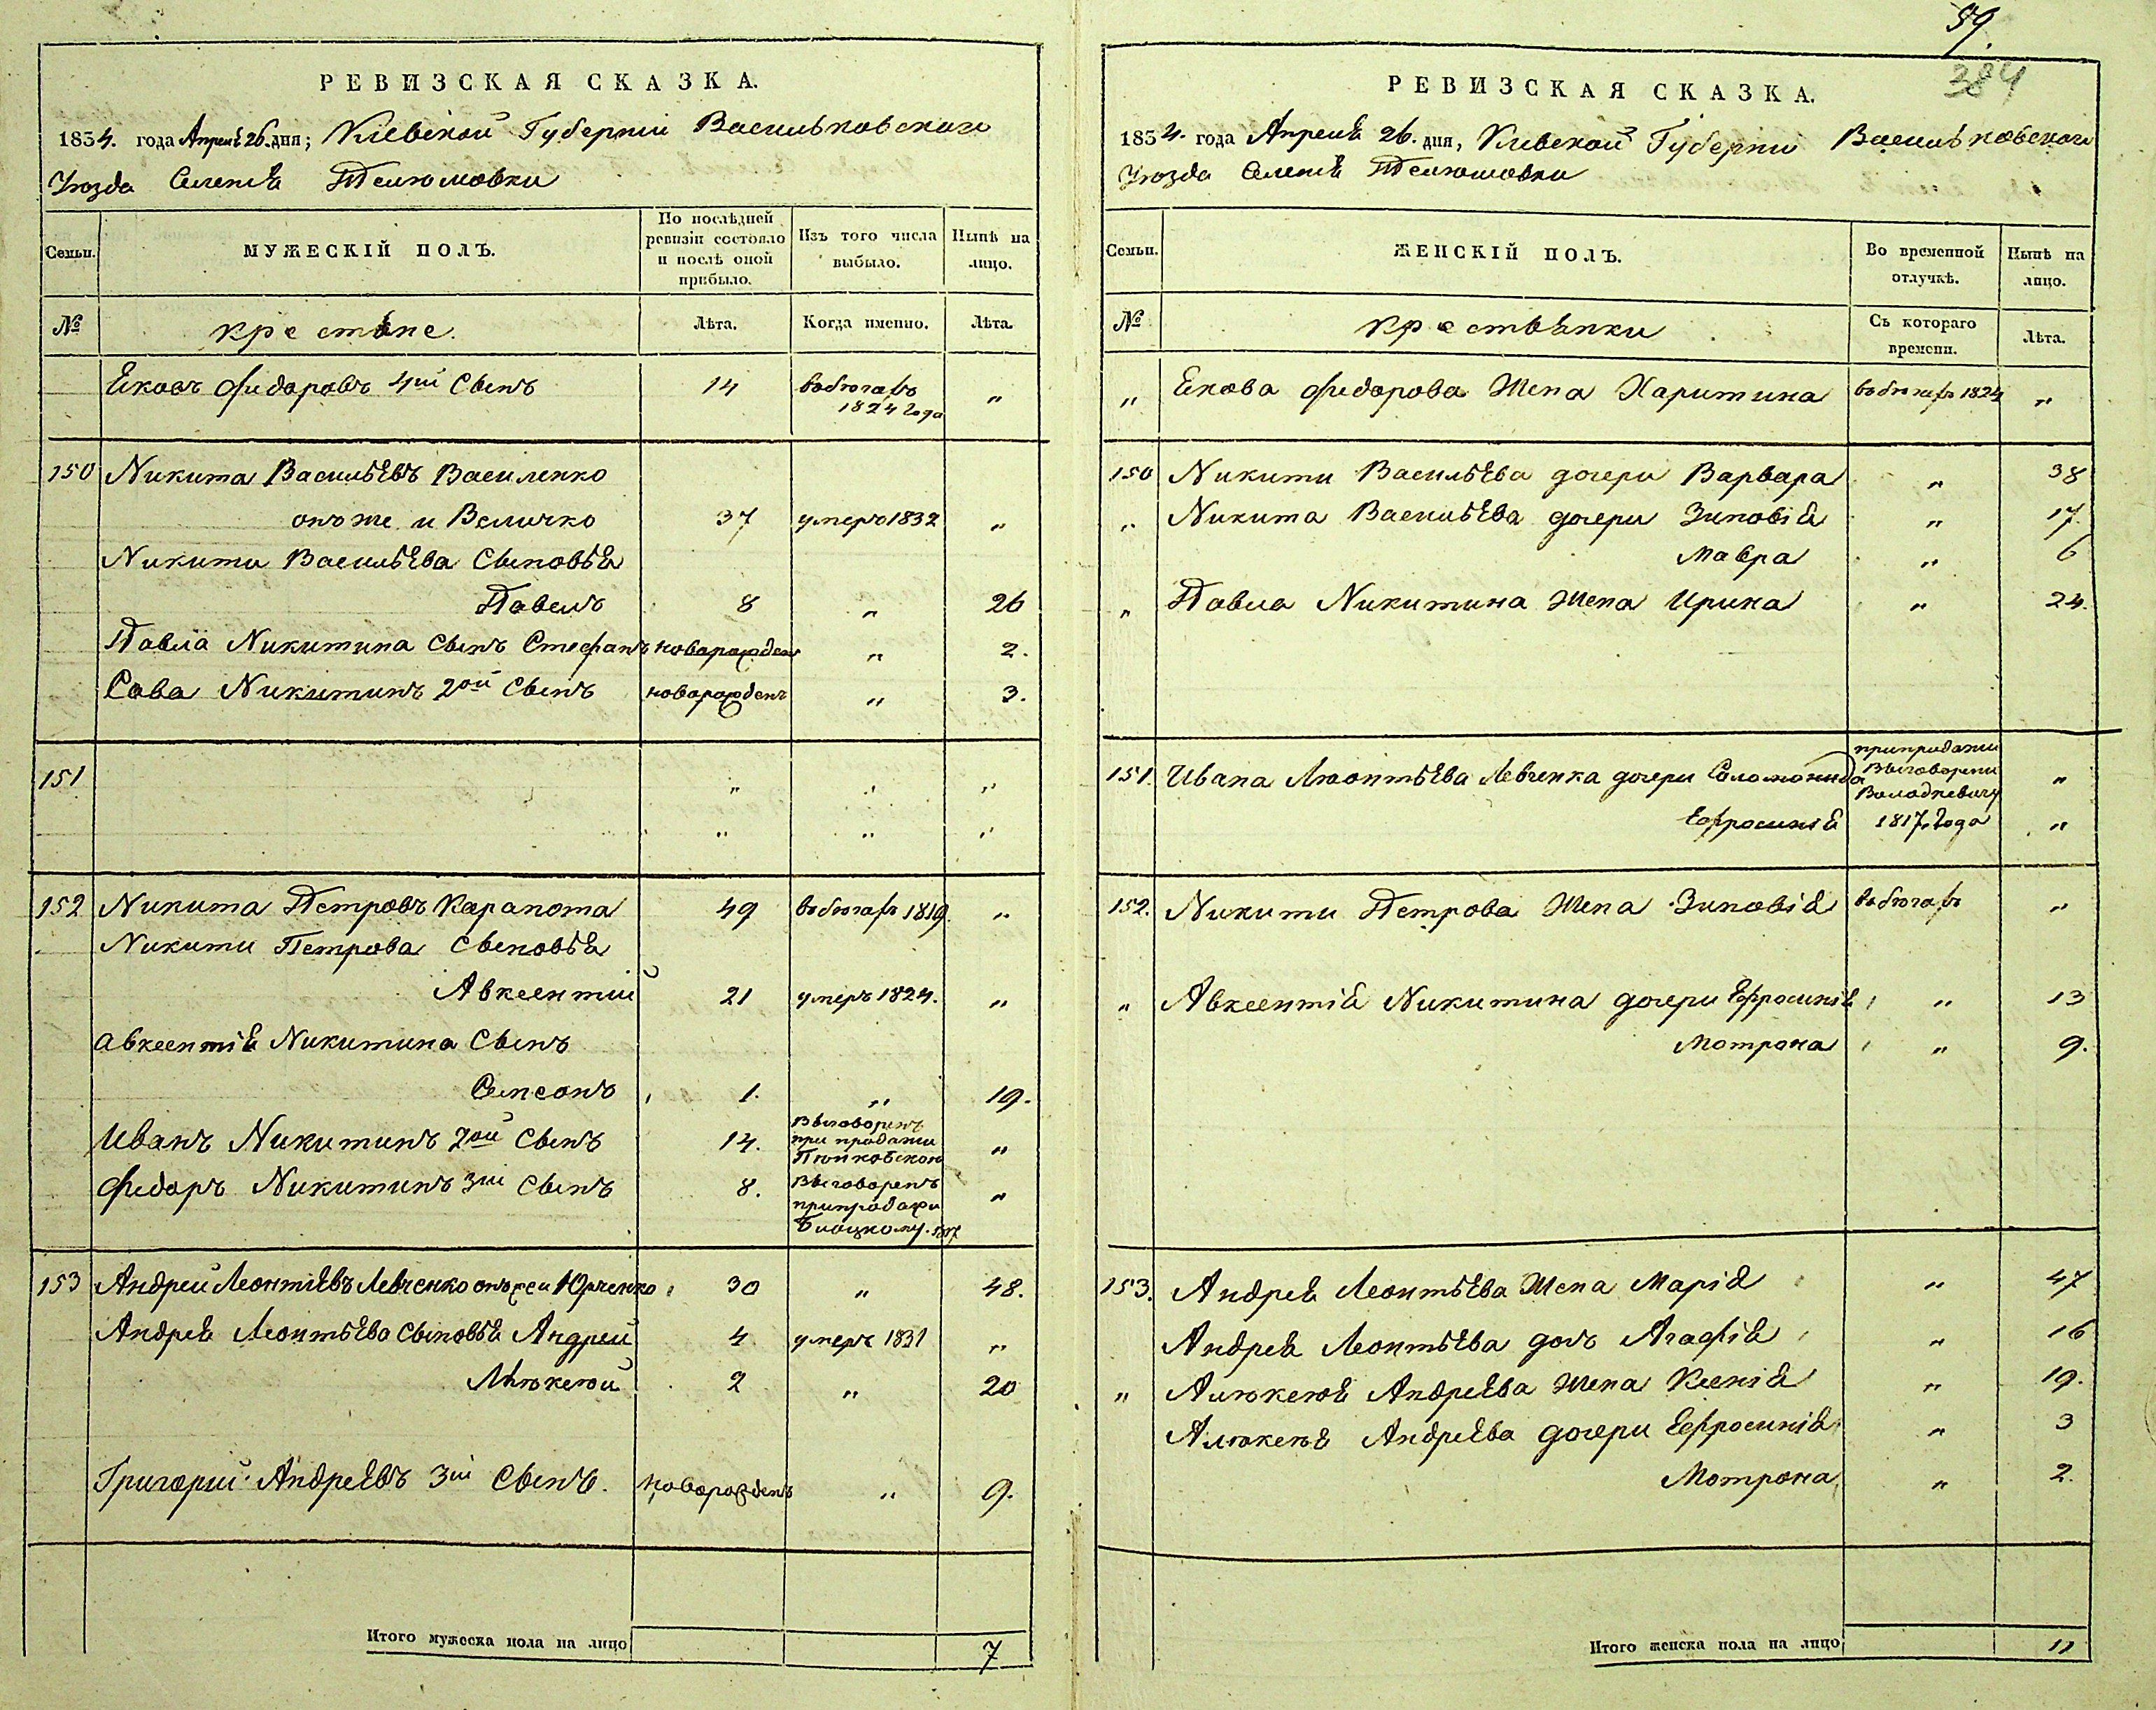 59.
384
РЕВИЗСКАЯ СКАЗКА.
1834. года Апреля 26. дня; Киевской Губернии Васильковского
Уюзда Селенія
МУЖЕСКІЙ ПОЛЪ.
Семьи.
По послѣдней ревизіи состояло и послѣ оной прибыло.
Изъ того числа выбыло.
Нынѣ на лицо.
№
крестяне.
Лѣта.
Когда именно.
Лѣта.
Яковъ Фидоровъ 4ий Сынъ 14 вбюгахъ 1824 года „
150 Никита Васильевъ Василенко
онъ же и Величко 37 умеръ 1832 „
Никити Васильева Сыновья
Павелъ 8 „ 26
Павла Никитина Сынъ Стефанъ новорожденъ „ 2.
Сава Никитинъ 2ой Сынъ новорожденъ „ 3.
151 „ „ „
„ „ „
152 Никита Петровъ Карапота 49 вбюгахъ 1819. „
Никити Петрова Сыновья
Авксентий 21 умеръ 1824. „
Авксентія Никитина Сынъ
Самсонъ 1. „ 19.
Иванъ Никитинъ 2ой Сынъ 14. Выговоренъ при продажи „
Фидоръ Никитинъ 3ий Сынъ 8. Выговоренъ при продажи „
153 Андрей Леонтіевъ Левченко онъ же и Юрченко 30 „ 48.
Андрея Леонтьева Сыновья Андрей 4 умеръ 1831 „
2 „ 20
Григорий Андреевъ 3ий Сынъ. новорожденъ „ 9.
Итого мужеска пола на лицо 7
РЕВИЗСКАЯ СКАЗКА.
1834. года Апреля 26. дня, Киевской Губернии Васильковского
Уюзда Селенія
ЖЕНСКІЙ ПОЛЪ.
Семьи.
Во временной отлучкѣ.
Нынѣ на лицо.
№
крестьянки
Съ котораго времени.
Лѣта.
„ Якова Фидорова Жена Харитина вбюгахъ 1824 „
150 Никити Васильева дочери Варвара „ 38
„ Никита Васильева дочери Зиновія „ 17.
Мавра „ 6
„ Павла Никитина Жена Ирина „ 24.
151. Ивана Люонтьева Левченка дочери Соломонида при продажи Выговорени „
Ефросинія 1817. года „
152. Никити Петрова Жена Зиновія вбюгахъ „
„ Авксентія Никитина дочери Ефросинія „ 13
Мотрона „ 9.
153. Андрея Леонтьева Жена Марія „ 47
Андрея Леонтьева дочь Агафія „ 16
„ Алюксюя Андреева Жена Ксенія „ 19.
Алюксюя Андреева дочери Ефросинія „ 3
Мотрона „ 2.
Итого женска пола на лицо 11